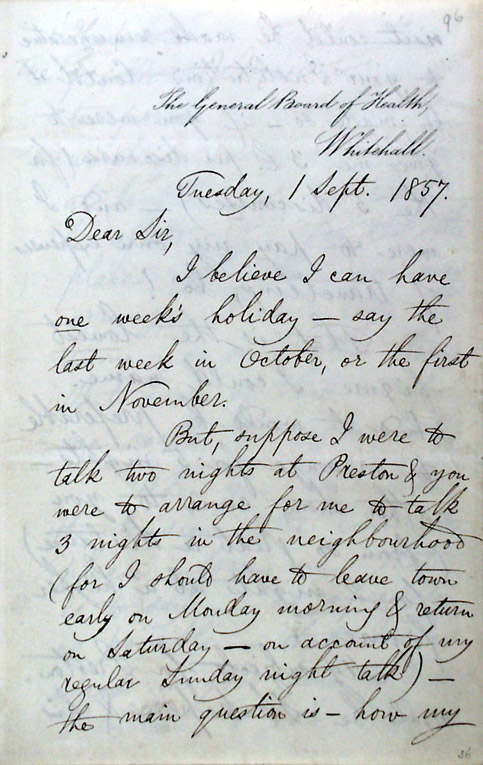 96
The General Board of Health,
Whitehall.
Tuesday, 1 Sept. 1857.
Dear Sir,
I believe I can have
one week's holiday – say the
last week in October, or the first
in November.
But, suppose I were to
talk two nights at Preston & you
were to arrange for me to talk
3 nights in the neighbourhood
(for I should have to leave town
early on Monday morning & return
on Saturday – on account of my
regular Sunday night talk) –
the main question is – how my